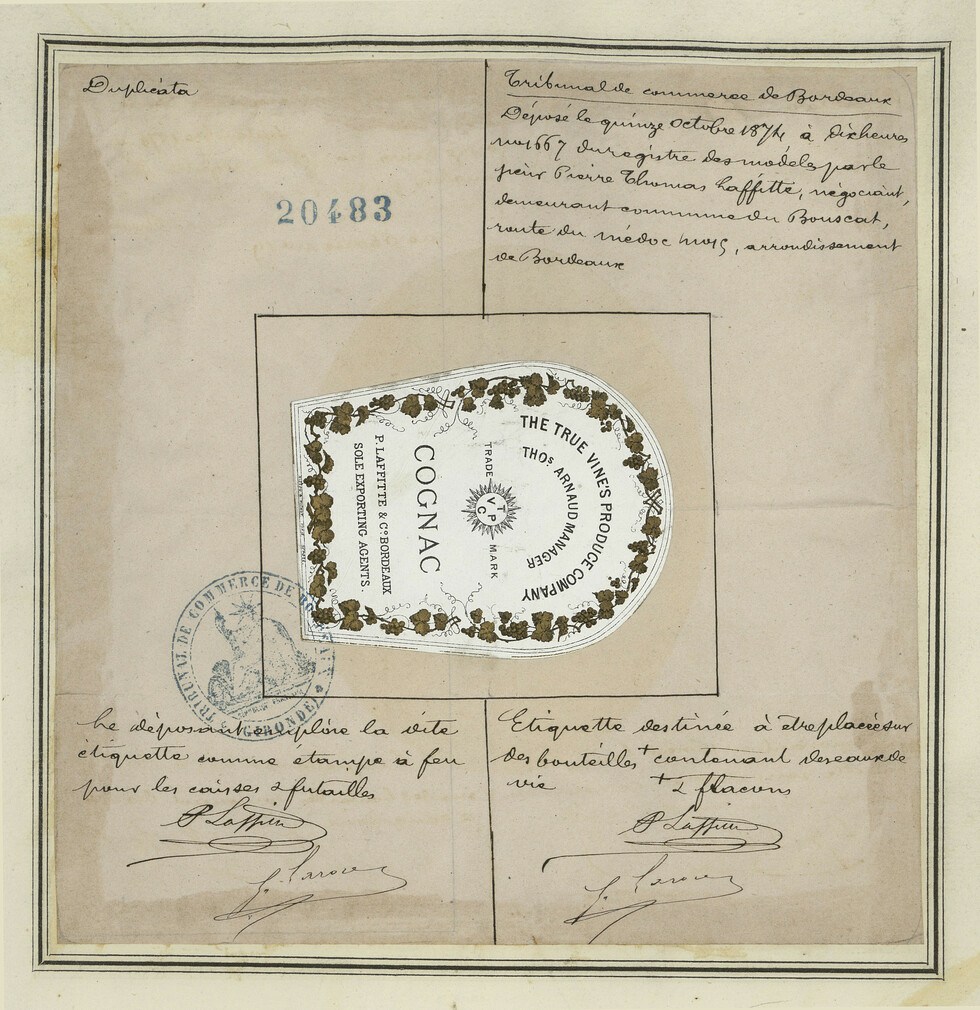 Duplicata
20483
Tribunal de commerce de Bordeaux
Déposé le quinze Octobre 1874 à dix heures
no 1667 du registre des modèles par le
sieur Pierre Thomas Laffitte, négociant,
demeurant commune du Bouscat,
route du médoc no 15, arrondissement
de Bordeaux
THE TRUE VINE'S PRODUCE COMPANY
THOS ARNAUD MANAGER
TRADE MARK
TVPC
COGNAC
P. LAFFITTE & Co BORDEAUX
SOLE EXPORTING AGENTS.
TRIBUNAL DE COMMERCE DE BORDEAUX
(GIRONDE)
Le déposant emploie la dite
étiquette comme étampe à feu
pour les caisses & futailles
P Laffitte
Etiquette destinée à être placée sur
des bouteilles + contenant des eaux de
vie + & flacons
P Laffitte